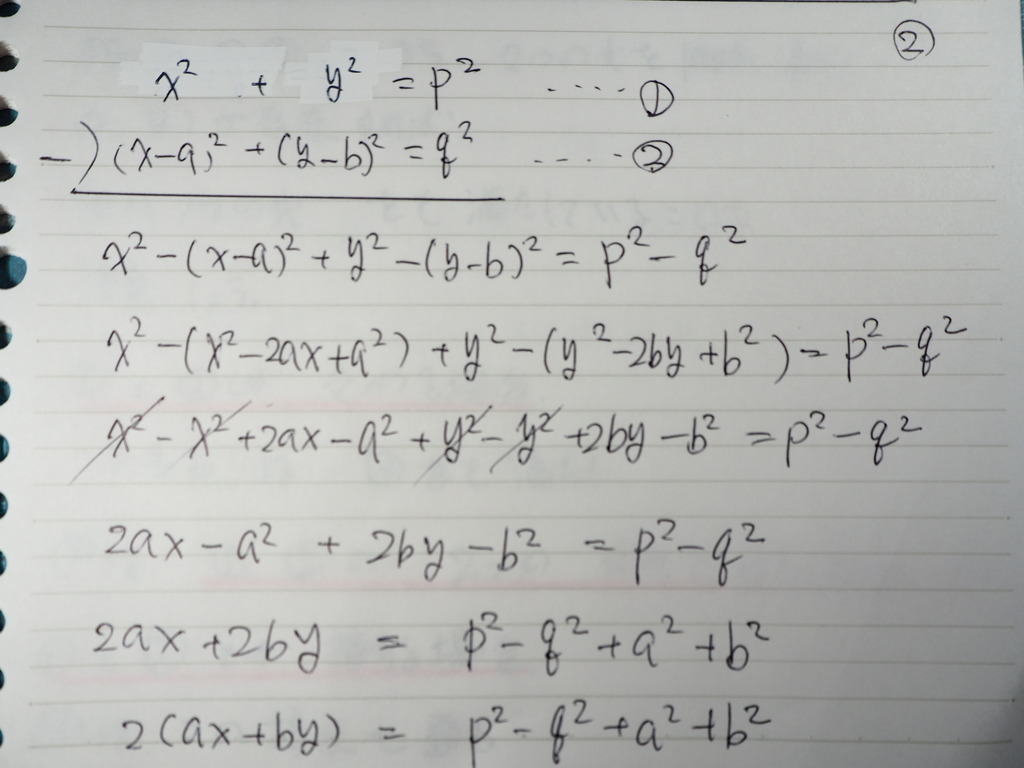 ②
x² + y² = p² ····· ①
−) (x−a)² + (y−b)² = q² ····· ②
x² − (x−a)² + y² − (y−b)² = p² − q²
x² − (x² − 2ax + a²) + y² − (y² − 2by + b²) = p² − q²
x² − x² + 2ax − a² + y² − y² + 2by − b² = p² − q²
2ax − a² + 2by − b² = p² − q²
2ax + 2by = p² − q² + a² + b²
2(ax + by) = p² − q² + a² + b²